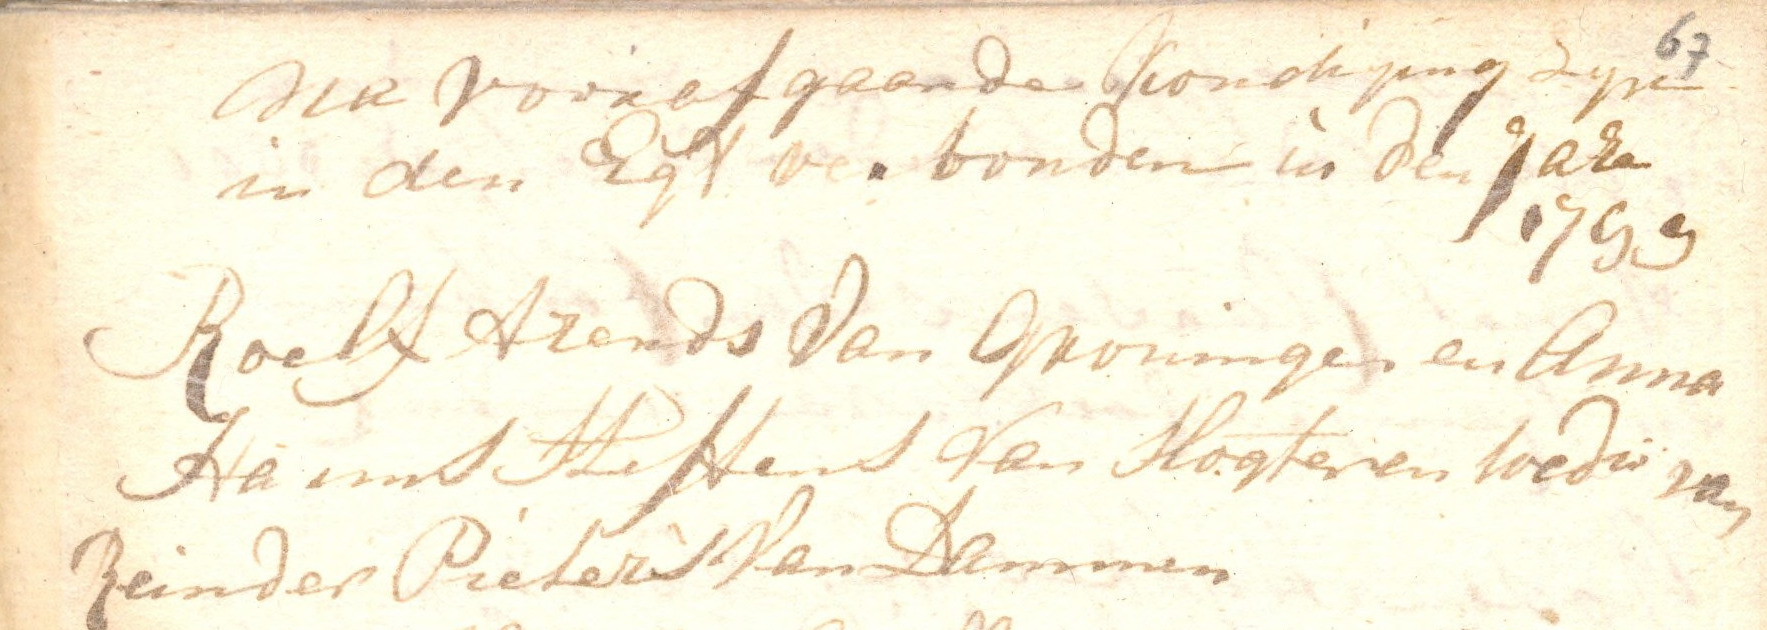 67
Na voorafgaande kondiging Zyn
in den Egt verbonden in den Jare
1799
Roelf Arends Van Groningen en Anna
Harms Steffens Van Hogteren wedu van
Reinder Pieters Van Dammen